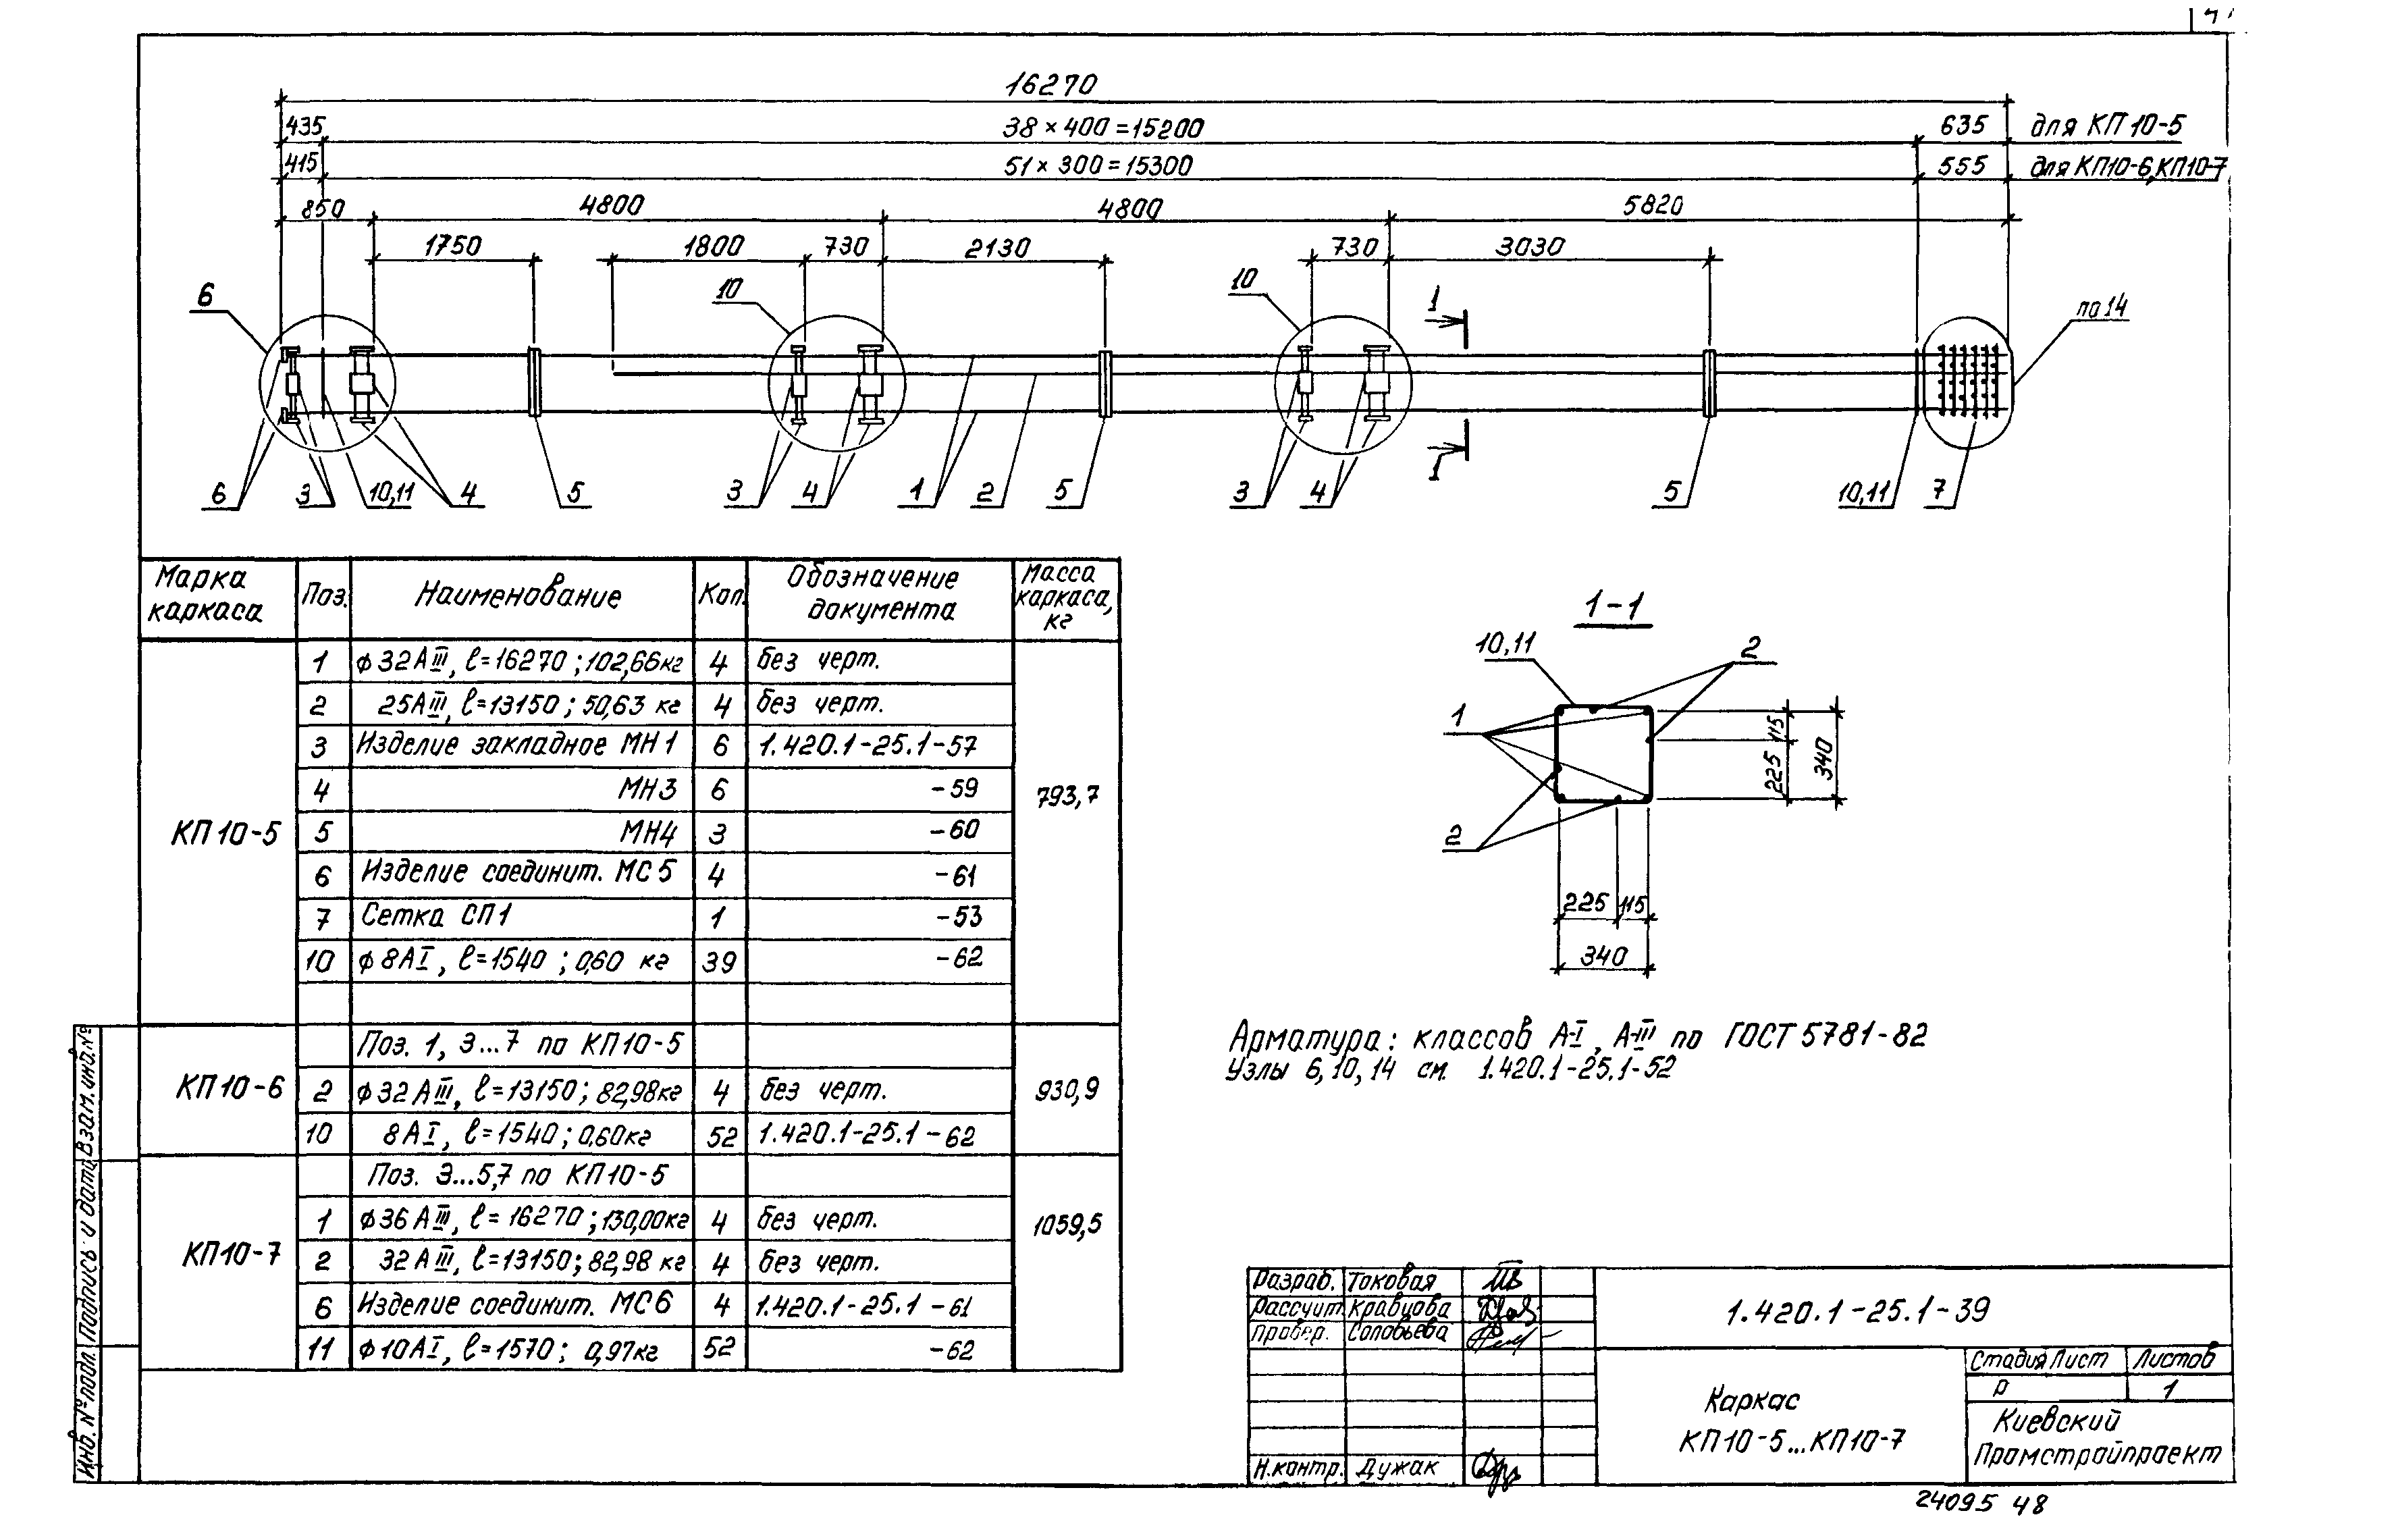 16270
435
38 × 400 = 15200
635
для КП 10-5
415
51 × 300 = 15300
555
для КП10-6, КП10-7
850
4800
4800
5820
1750
1800
730
2130
730
3030
6
10
10
1
по 14
6
3
10,11
4
5
3
4
1
2
5
3
4
1
5
10,11
7
Марка каркаса
Поз.
Наименование
Кол.
Обозначение документа
Масса каркаса, кг
КП 10-5
793,7
1 ф32АIII, ℓ=16270; 102,66кг 4 без черт.
2 25АIII, ℓ=13150; 50,63 кг 4 без черт.
3 Изделие закладное МН1 6 1.420.1-25.1-57
4 МН3 6 -59
5 МН4 3 -60
6 Изделие соединит. МС5 4 -61
7 Сетка СП1 1 -53
10 ф8АI, ℓ=1540; 0,60 кг 39 -62
КП 10-6
930,9
Поз. 1, 3...7 по КП10-5
2 ф32АIII, ℓ=13150; 82,98кг 4 без черт.
10 8АI, ℓ=1540; 0,60кг 52 1.420.1-25.1-62
КП10-7
1059,5
Поз. 3...5,7 по КП10-5
1 ф36АIII, ℓ=16270; 130,00кг 4 без черт.
2 32АIII, ℓ=13150; 82,98 кг 4 без черт.
6 Изделие соединит. МС6 4 1.420.1-25.1-61
11 ф10АI, ℓ=1570; 0,97кг 52 -62
1-1
10,11
2
1
2
115
225
340
225
115
340
Арматура: классов А-I, А-III по ГОСТ 5781-82
Узлы 6, 10, 14 см. 1.420.1-25.1-52
Разраб. Токовая
Рассчит. Кравцова
Провер. Соловьева
Н.контр. Дужак
1.420.1-25.1-39
Каркас
КП10-5...КП10-7
Стадия Лист Листов
Р 1
Киевский
Промстройпроект
Инв. № подл. Подпись и дата Взам. инв. №
24095 48